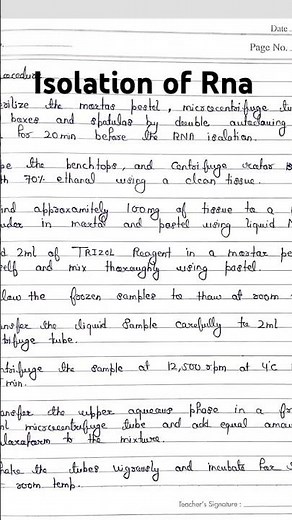 Date
Page No.
ocedure
Isolation of Rna
rilize the mortas pestel, microcentrifuge tu
boxes and spatulas by double autoclaving
for 20 min before the RNA isolation.
pe the benchtops, and Centrifuge rotor
th 70% ethanal using a clean tissue.
ind approxamitely 100 mg of tissue to a
uder in mortar and pastel using liquid N
d 2ml of TRIZOL Reagent in a mortar pe
self and mix thoroughly using pastel.
llow the frozen samples to thaw at room
ansfer the liquid Sample carefully to 2ml
trifuge tube.
ntrifuge the sample at 12,500 rpm at 4°C
min.
ansfer the upper aqueous phase in a fr
ml microcentrifuge tube and add equal amou
hloroform to the mixture.
hake the tubes vigrously and incubate for
room temp.
Teacher's Signature :